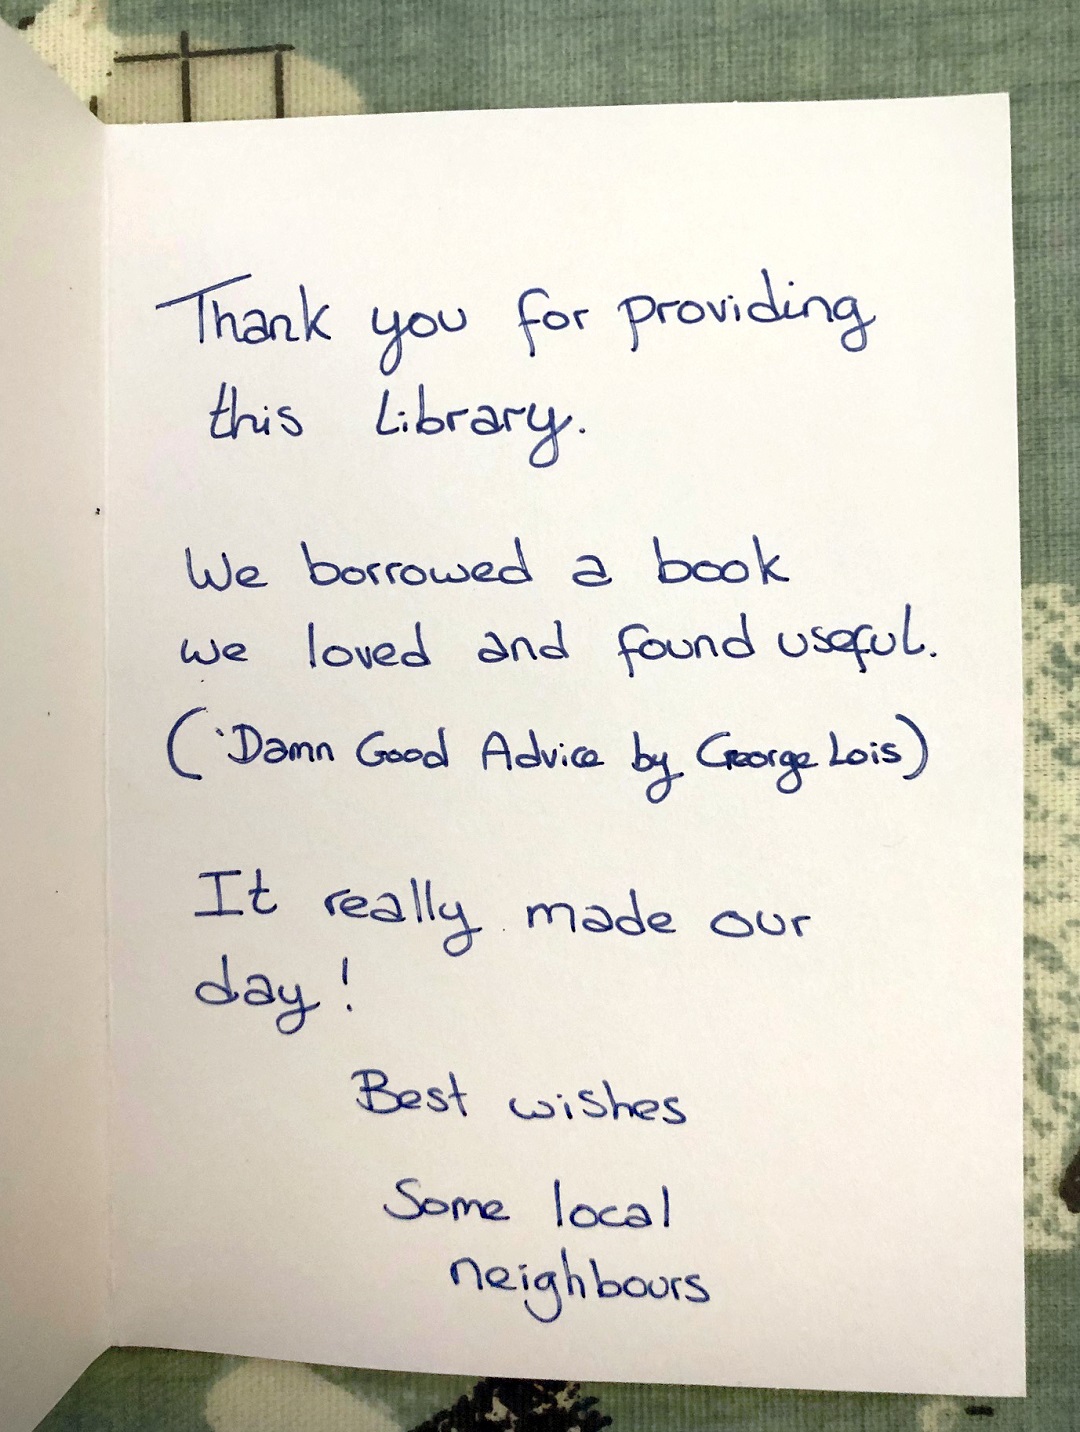 Thank you for providing
this Library.
We borrowed a book
we loved and found useful.
('Damn Good Advice by George Lois)
It really made our
day!
Best wishes
Some local
neighbours